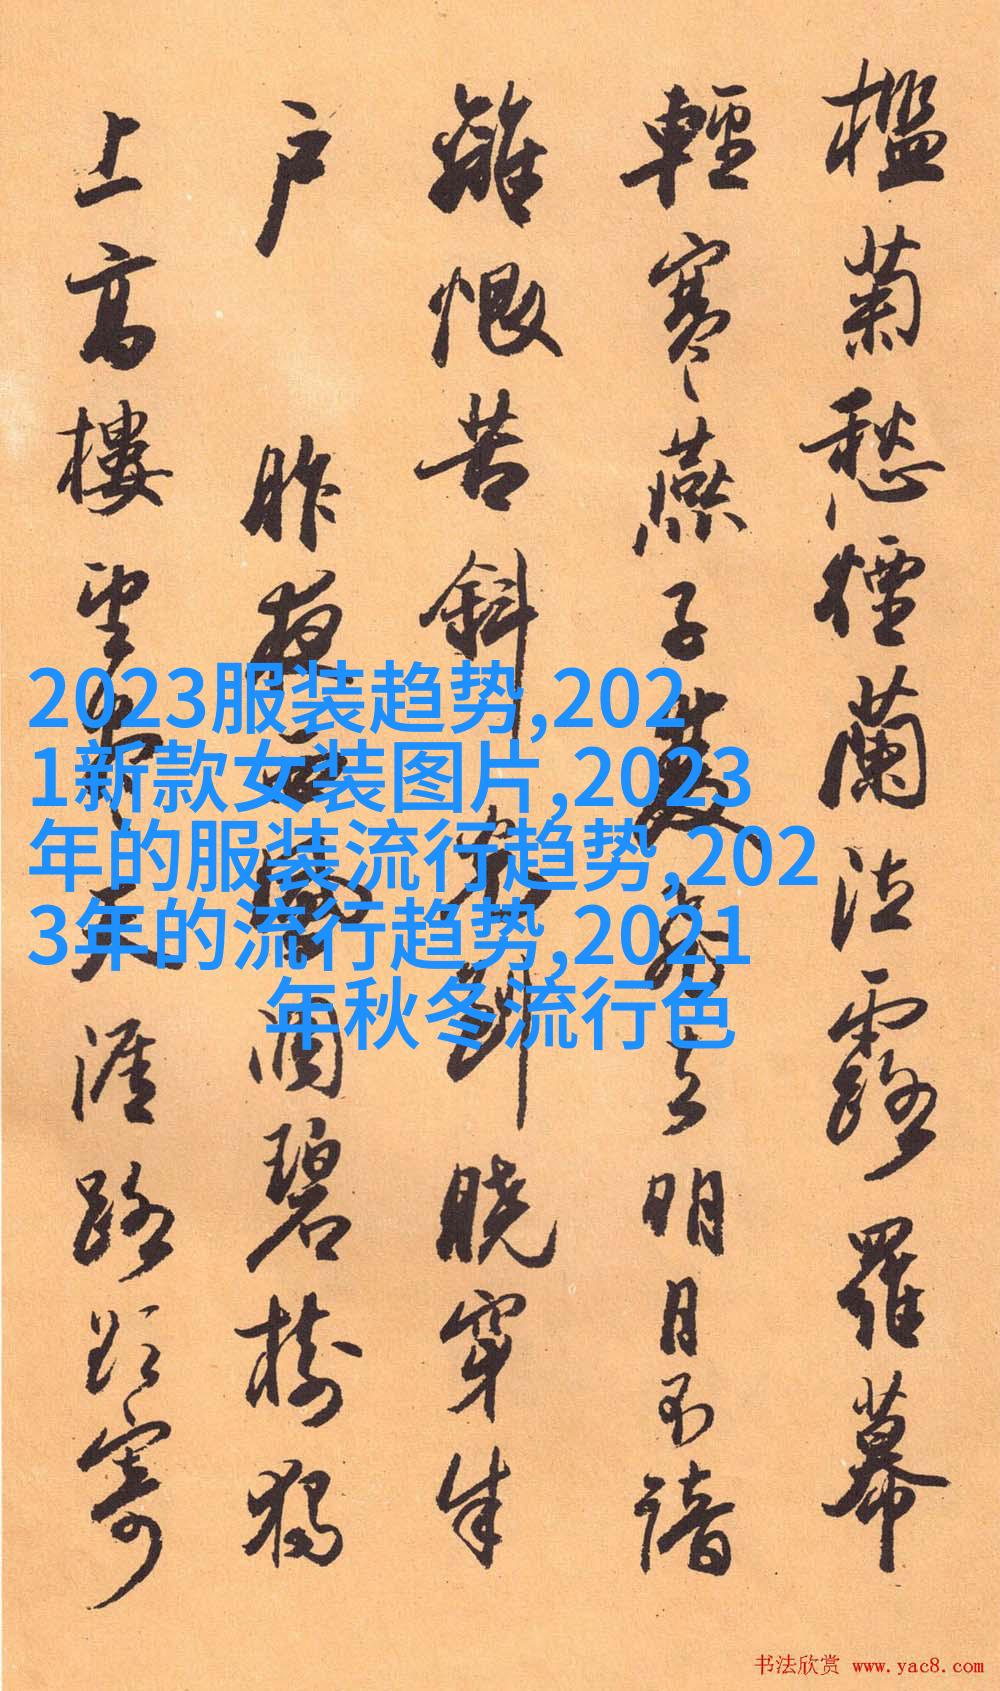 檻菊愁煙蘭泣露羅幕
輕寒燕子雙飛去明月不諳
離恨苦斜光到曉穿朱
户 昨夜西風凋碧樹獨
上高樓望盡天涯路欲寄
2023服装趋势,202
1新款女装图片,2023
年的服装流行趋势,202
3年的流行趋势,2021
年秋冬流行色
书法欣赏 www.yac8.com